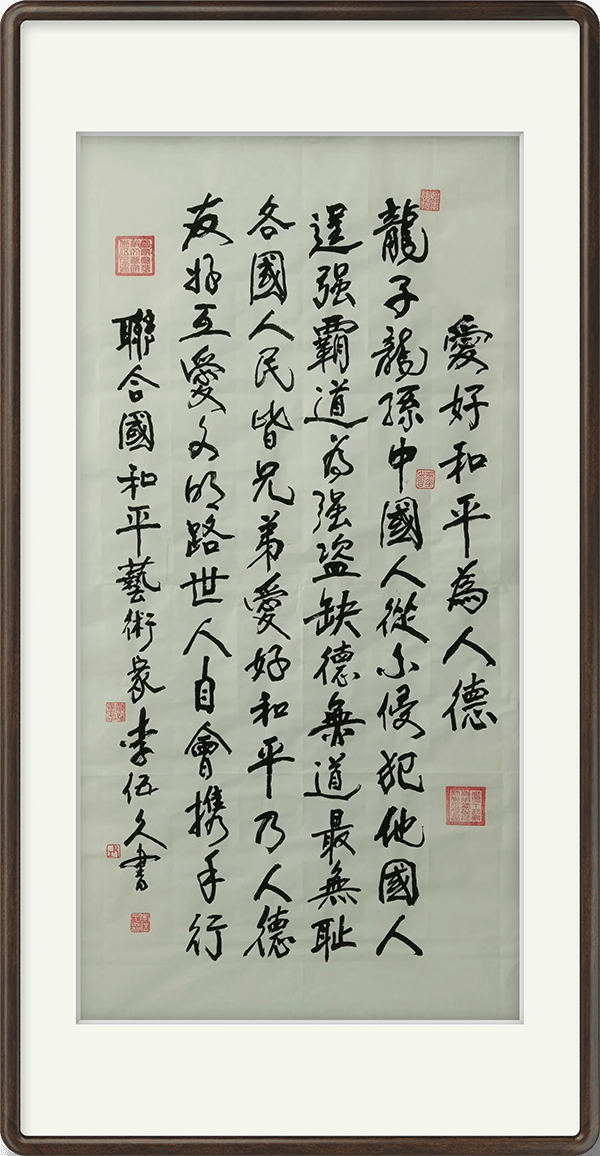 愛好和平為人德
龍子龍孫中國人從不侵犯他國人
逞强霸道為强盗缺德無道最無耻
各國人民皆兄弟愛好和平乃人德
友好互愛文明路世人自會携手行
聯合國和平藝術家李伍久書